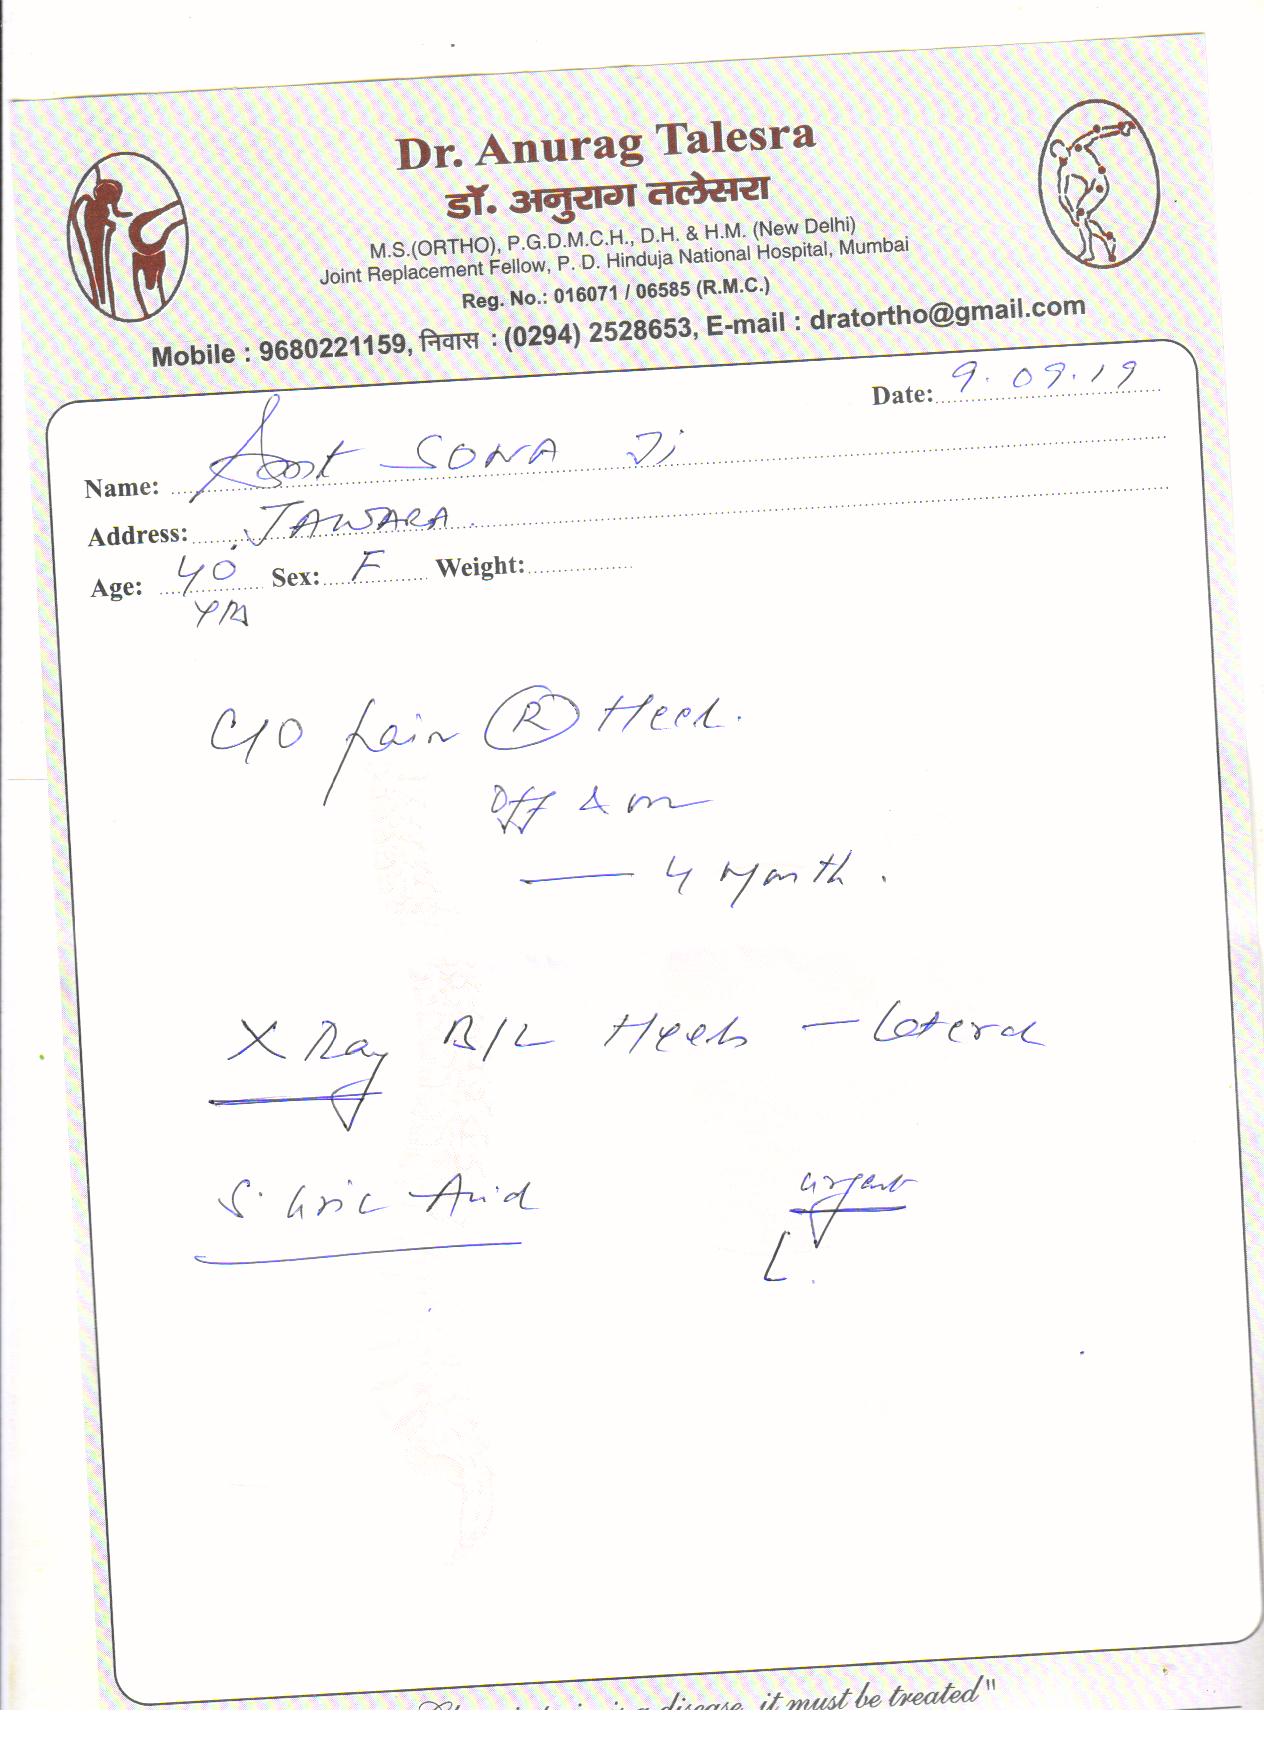 Dr. Anurag Talesra
डॉ. अनुराग तलेसरा
M.S.(ORTHO), P.G.D.M.C.H., D.H. & H.M. (New Delhi)
Joint Replacement Fellow, P. D. Hinduja National Hospital, Mumbai
Reg. No.: 016071 / 06585 (R.M.C.)
Mobile : 9680221159, निवास : (0294) 2528653, E-mail : dratortho@gmail.com
Date: 9.09.19
Name: SONA Ji
Address: JAWARA.
Age: 40 Sex: F Weight:
YRS
C/O pain R Heel.
Off & on
— 4 Month.
X Ray B/L Heels — Lateral
S. Uric Acid urgent
disease, it must be treated"